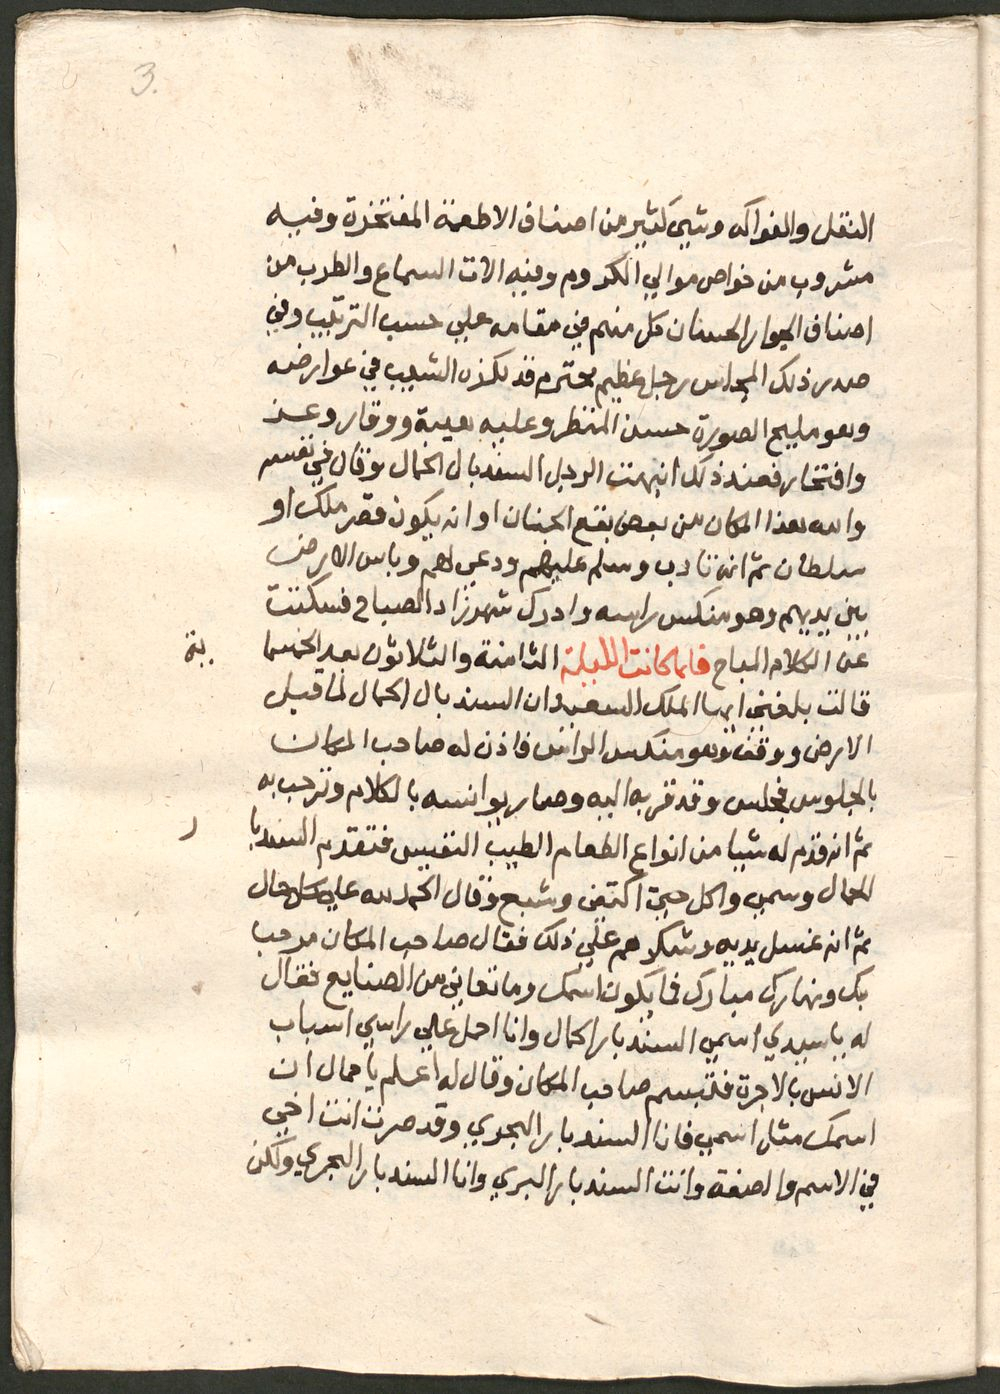 3.
النقل والفواكه وشي كثير من اصناف الاطعمة المفتخرة وفيه
مشروب من خواص موالي الكروم وفيه الات السماع والطرب من
اصناف الجوار الحسان كل منهم في مقامه علي حسب الترتيب وفي
صدر ذلك المجلس رجل عظيم محترم قد لكزه الشيب في عوارضه
وهو مليح الصورة حسن المنظر وعليه هيبة ووقار وعز
وافتخار فعند ذلك انبهت الرجل السندبال الحمال وقال في نفسه
والله هذا المكان من بعض بقع الجنان او انه يكون قصر ملك او
سلطان ثم انه تادب وسلم عليهم ودعي لهم وباس الارض
بين يديهم وهو منكس راسه وادرك شهرزاد الصباح فسكتت
عن الكلام المباح فلما كانت الليلة الثامنة والثلاثون بعد الخمسما
ية
قالت بلغني ايها الملك السعيد ان السندبال الحمال لما قبل
الارض ووقف وهو منكس الراس فاذن له صاحب المكان
بالجلوس فجلس وقد قربه اليه وصار يوانسه بالكلام وترحب به
ثم انه قدم له شيا من انواع الطعام الطيب النفيس فتقدم السندبا
ر
الحمال وسمي واكل حتي اكتفي وشبع وقال الحمد لله علي كل حال
ثم انه غسل يديه وشكرهم علي ذلك فقال صاحب المكان مرحب
بك ونهارك مبارك فما يكون اسمك وما تعاني من الصنايع فقال
له ياسيدي اسمي السندبار الحمال وانا احمل علي راسي اسباب
الانس بالاجرة فتبسم صاحب المكان وقال له اعلم يا حمال ان
اسمك مثل اسمي فانا السندبار البحري وقد صرت انت اخي
في الاسم والصفة وانت السندبار البري وانا السندبار البحري ولكن